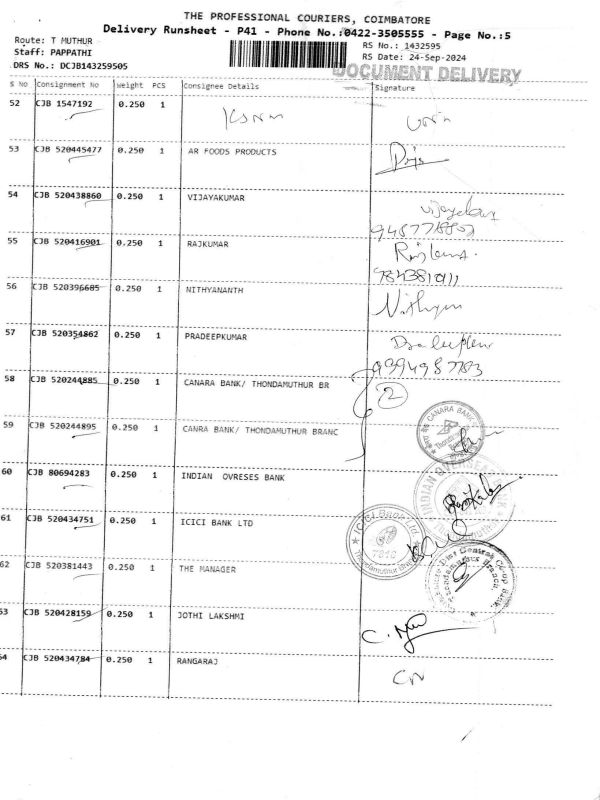 THE PROFESSIONAL COURIERS, COIMBATORE
Delivery Runsheet - P41 - Phone No.:0422-3505555 - Page No.:5
Route: T MUTHUR
RS No.: 1432595
Staff: PAPPATHI
RS Date: 24-Sep-2024
DRS No.: DCJB143259505
DOCUMENT DELIVERY
S No Consignment No Weight PCS Consignee Details Signature
52 CJB 1547192 0.250 1
53 CJB 520445477 0.250 1 AR FOODS PRODUCTS
54 CJB 520438860 0.250 1 VIJAYAKUMAR
55 CJB 520416901 0.250 1 RAJKUMAR
56 CJB 520396685 0.250 1 NITHYANANTH
57 CJB 520354862 0.250 1 PRADEEPKUMAR
58 CJB 520244885 0.250 1 CANARA BANK/ THONDAMUTHUR BR
2
59 CJB 520244895 0.250 1 CANRA BANK/ THONDAMUTHUR BRANC
CANARA BANK
60 CJB 80694283 0.250 1 INDIAN OVRESES BANK
INDIAN OVERSEAS
61 CJB 520434751 0.250 1 ICICI BANK LTD
ICICI Bank Ltd.
62 CJB 520381443 0.250 1 THE MANAGER
53 CJB 520428159 0.250 1 JOTHI LAKSHMI
54 CJB 520434784 0.250 1 RANGARAJ